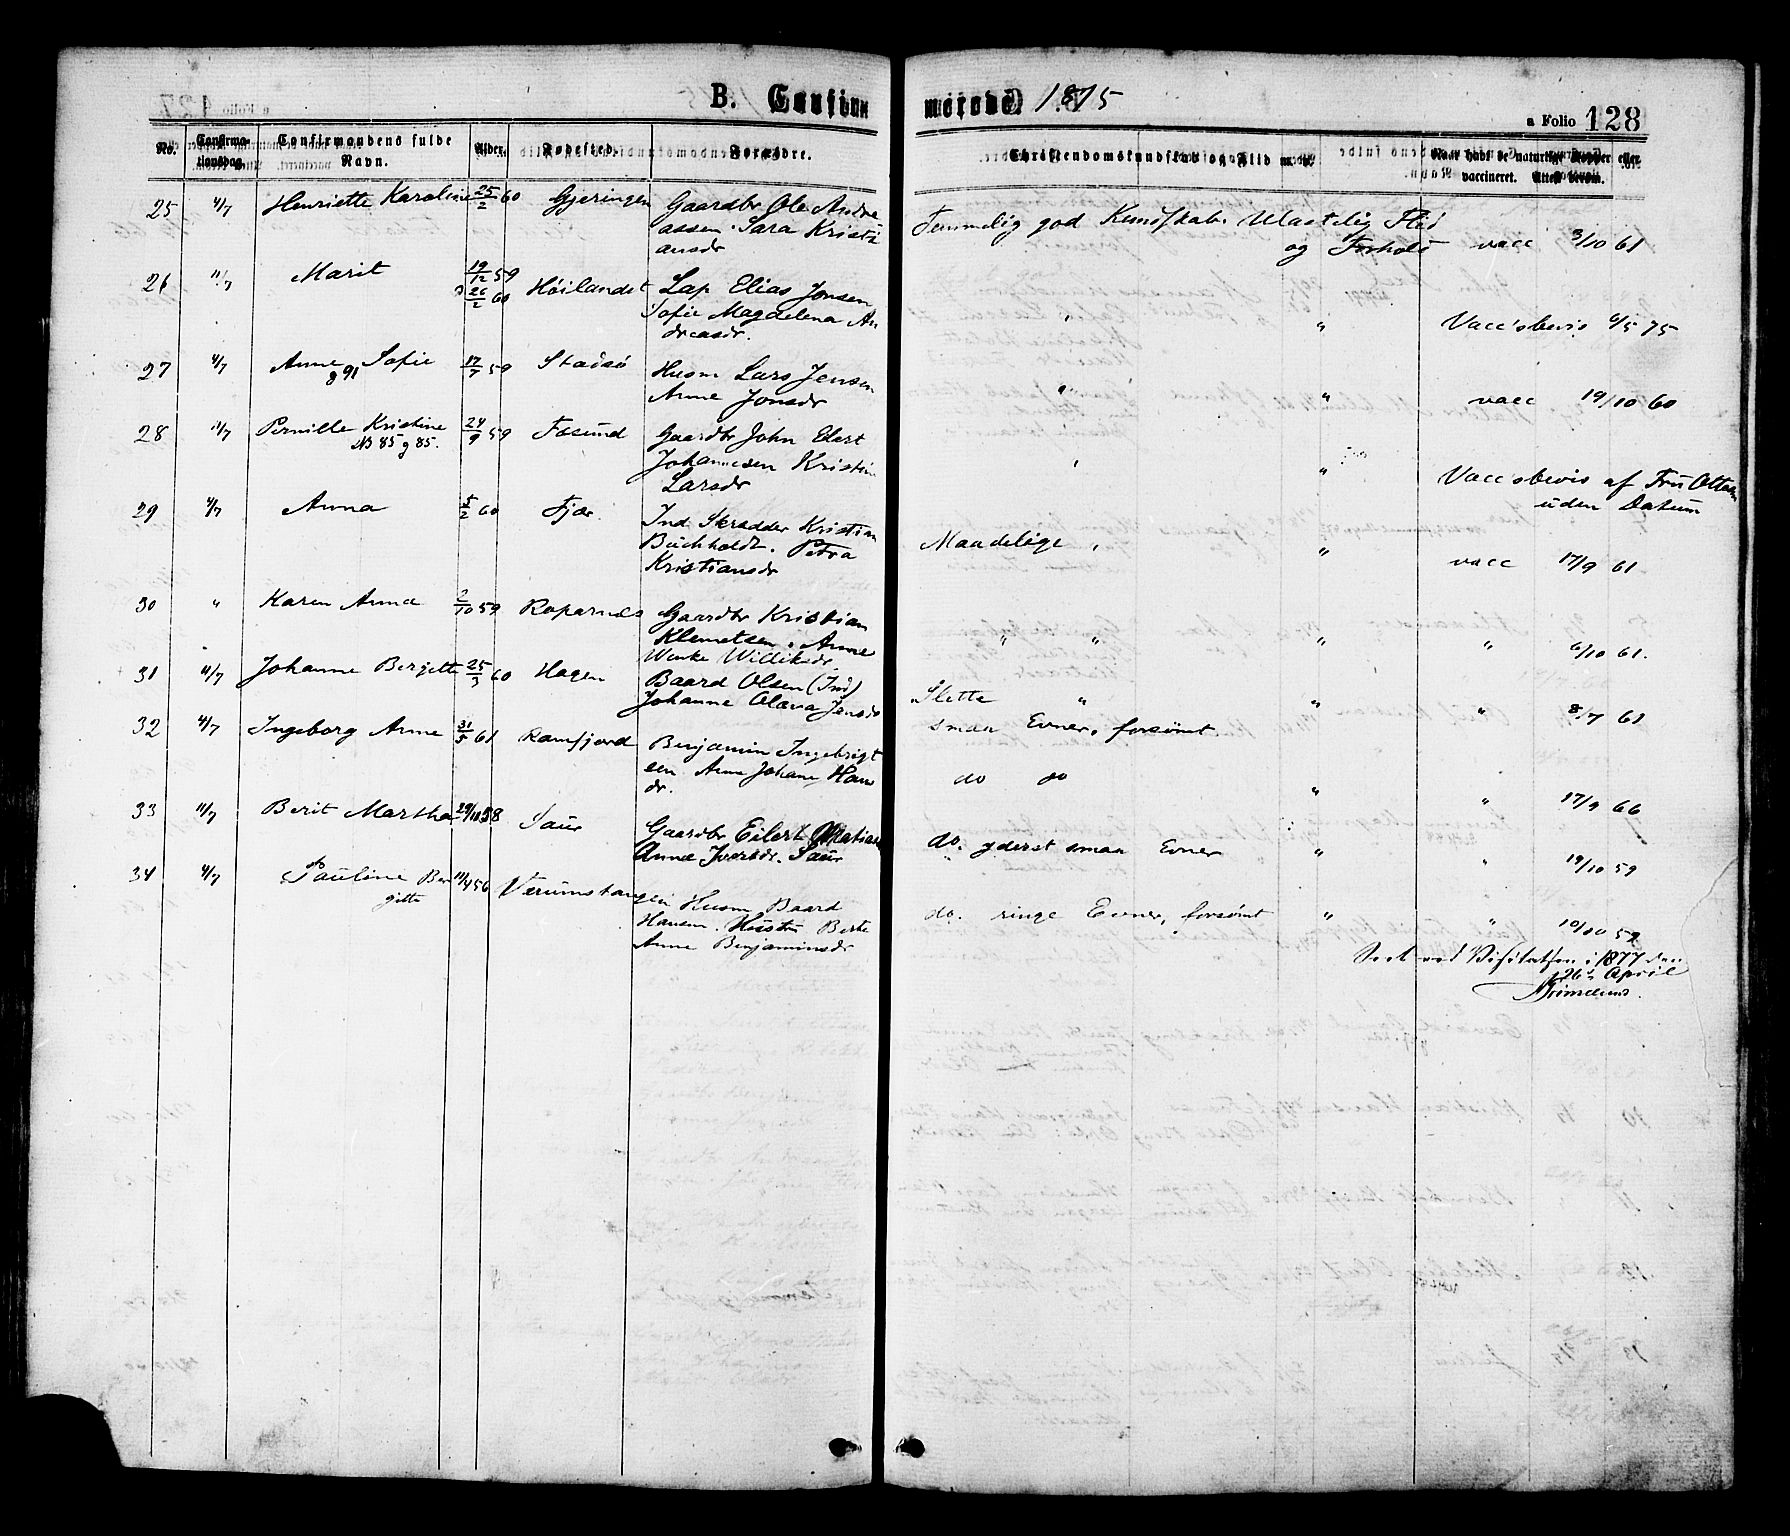 B. Confir merede. 1875
a Folio 128
No. Confirma- tionsdag. Confirmandens fulde Navn. Alder. Fødested. Forældre. Christendomskundskab og Flid m. m. Naar havt de naturlige Kopper eller vaccineret. Attest derom.
25 11/7 Henriette Karoline 25/2 60 Gjeringen Gaardbr Ole Andre
assen. Sara Kristi
ansdr
Temmelig god Kundskab. Ulastelig Flid
og Forhold vacc 3/10 61
26 11/7 Marit 19/12 59 Høilandet Lap Elias Jonsen
26/2 60 Sofie Magdelena An
dreasdr.
" " Vacc'sbevis 6/5 75
27 11/7 Anne Sofie 17/7 59 Stadsø Husm Lars Jensen
g 91 Anne Jonsdr
" " vacc 19/10 60
28 11/7 Pernille Kristine 24/9 59 Fosund Gaardbr John Elert
NB 85 g 85. Johannesen Kristin
Larsdr
" " Vacc'sbevis af Fru Ottesen
uden Datum
29 11/7 Anna 5/2 60 Fjær Ind. Skrædder Kristian
Buchholdt. Petra
Kristiansdr
Maadelige " " vacc 17/9 61
30 " Karen Anna 2/10 59 Roparnes Gaardbr Kristian
Klemetsen. Anne
Wenke Williksdr
" " " " 6/10 61.
31 11/7 Johanne Bergitte 25/3 60 Hagen Baard Olsen (Ind)
Johanne Olava Jensdr
Slette " " " 8/7 61
smaa Evner, forsømt
32 11/7 Ingeborg Anne 31/5 61 Ramfjord Benjamin Ingebrigt
sen Anne Johanna Hans
dr.
do do " " 17/9 66
33 11/7 Berit Martha 29/10 58 Saur Gaardbr Eilert Mathias
Anna Iversdr. Saur
do. yderst smaa Evner " " 19/10 59
34 11/7 Pauline Ber 11/4 56 Værumstangen Husm Baard
gitte Hansen. Hustru Berte
Anne Benjaminsdr
do. ringe Evner, forsømt " " 10/10 59
Seet ved Visitatsen i 1877 den
26de April